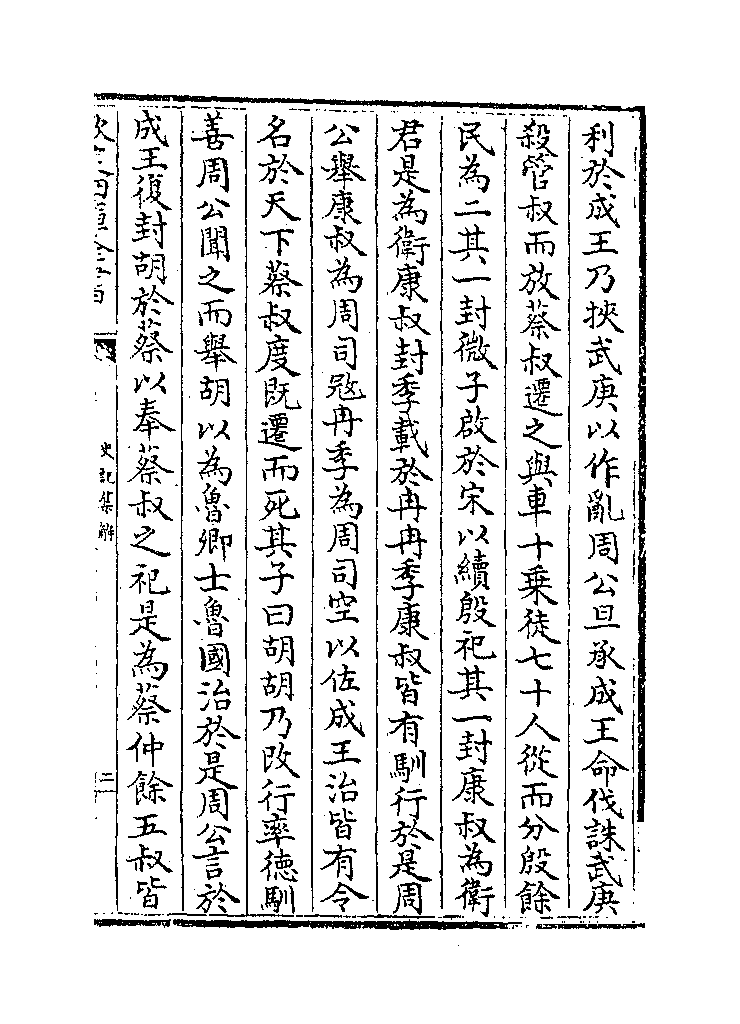 利於成王乃挾武庚以作亂周公旦承成王命伐誅武庚
殺管叔而放蔡叔遷之與車十乗徒七十人從而分殷餘
民為二其一封微子啟於宋以續殷祀其一封康叔為衛
君是為衛康叔封季載於冉冉季康叔皆有馴行於是周
公舉康叔為周司冦冉季為周司空以佐成王治皆有令
名於天下蔡叔度既遷而死其子曰胡胡乃改行率徳馴
善周公聞之而舉胡以為魯卿士魯國治於是周公言於
成王復封胡於蔡以奉蔡叔之祀是為蔡仲餘五叔皆
史記集解
二